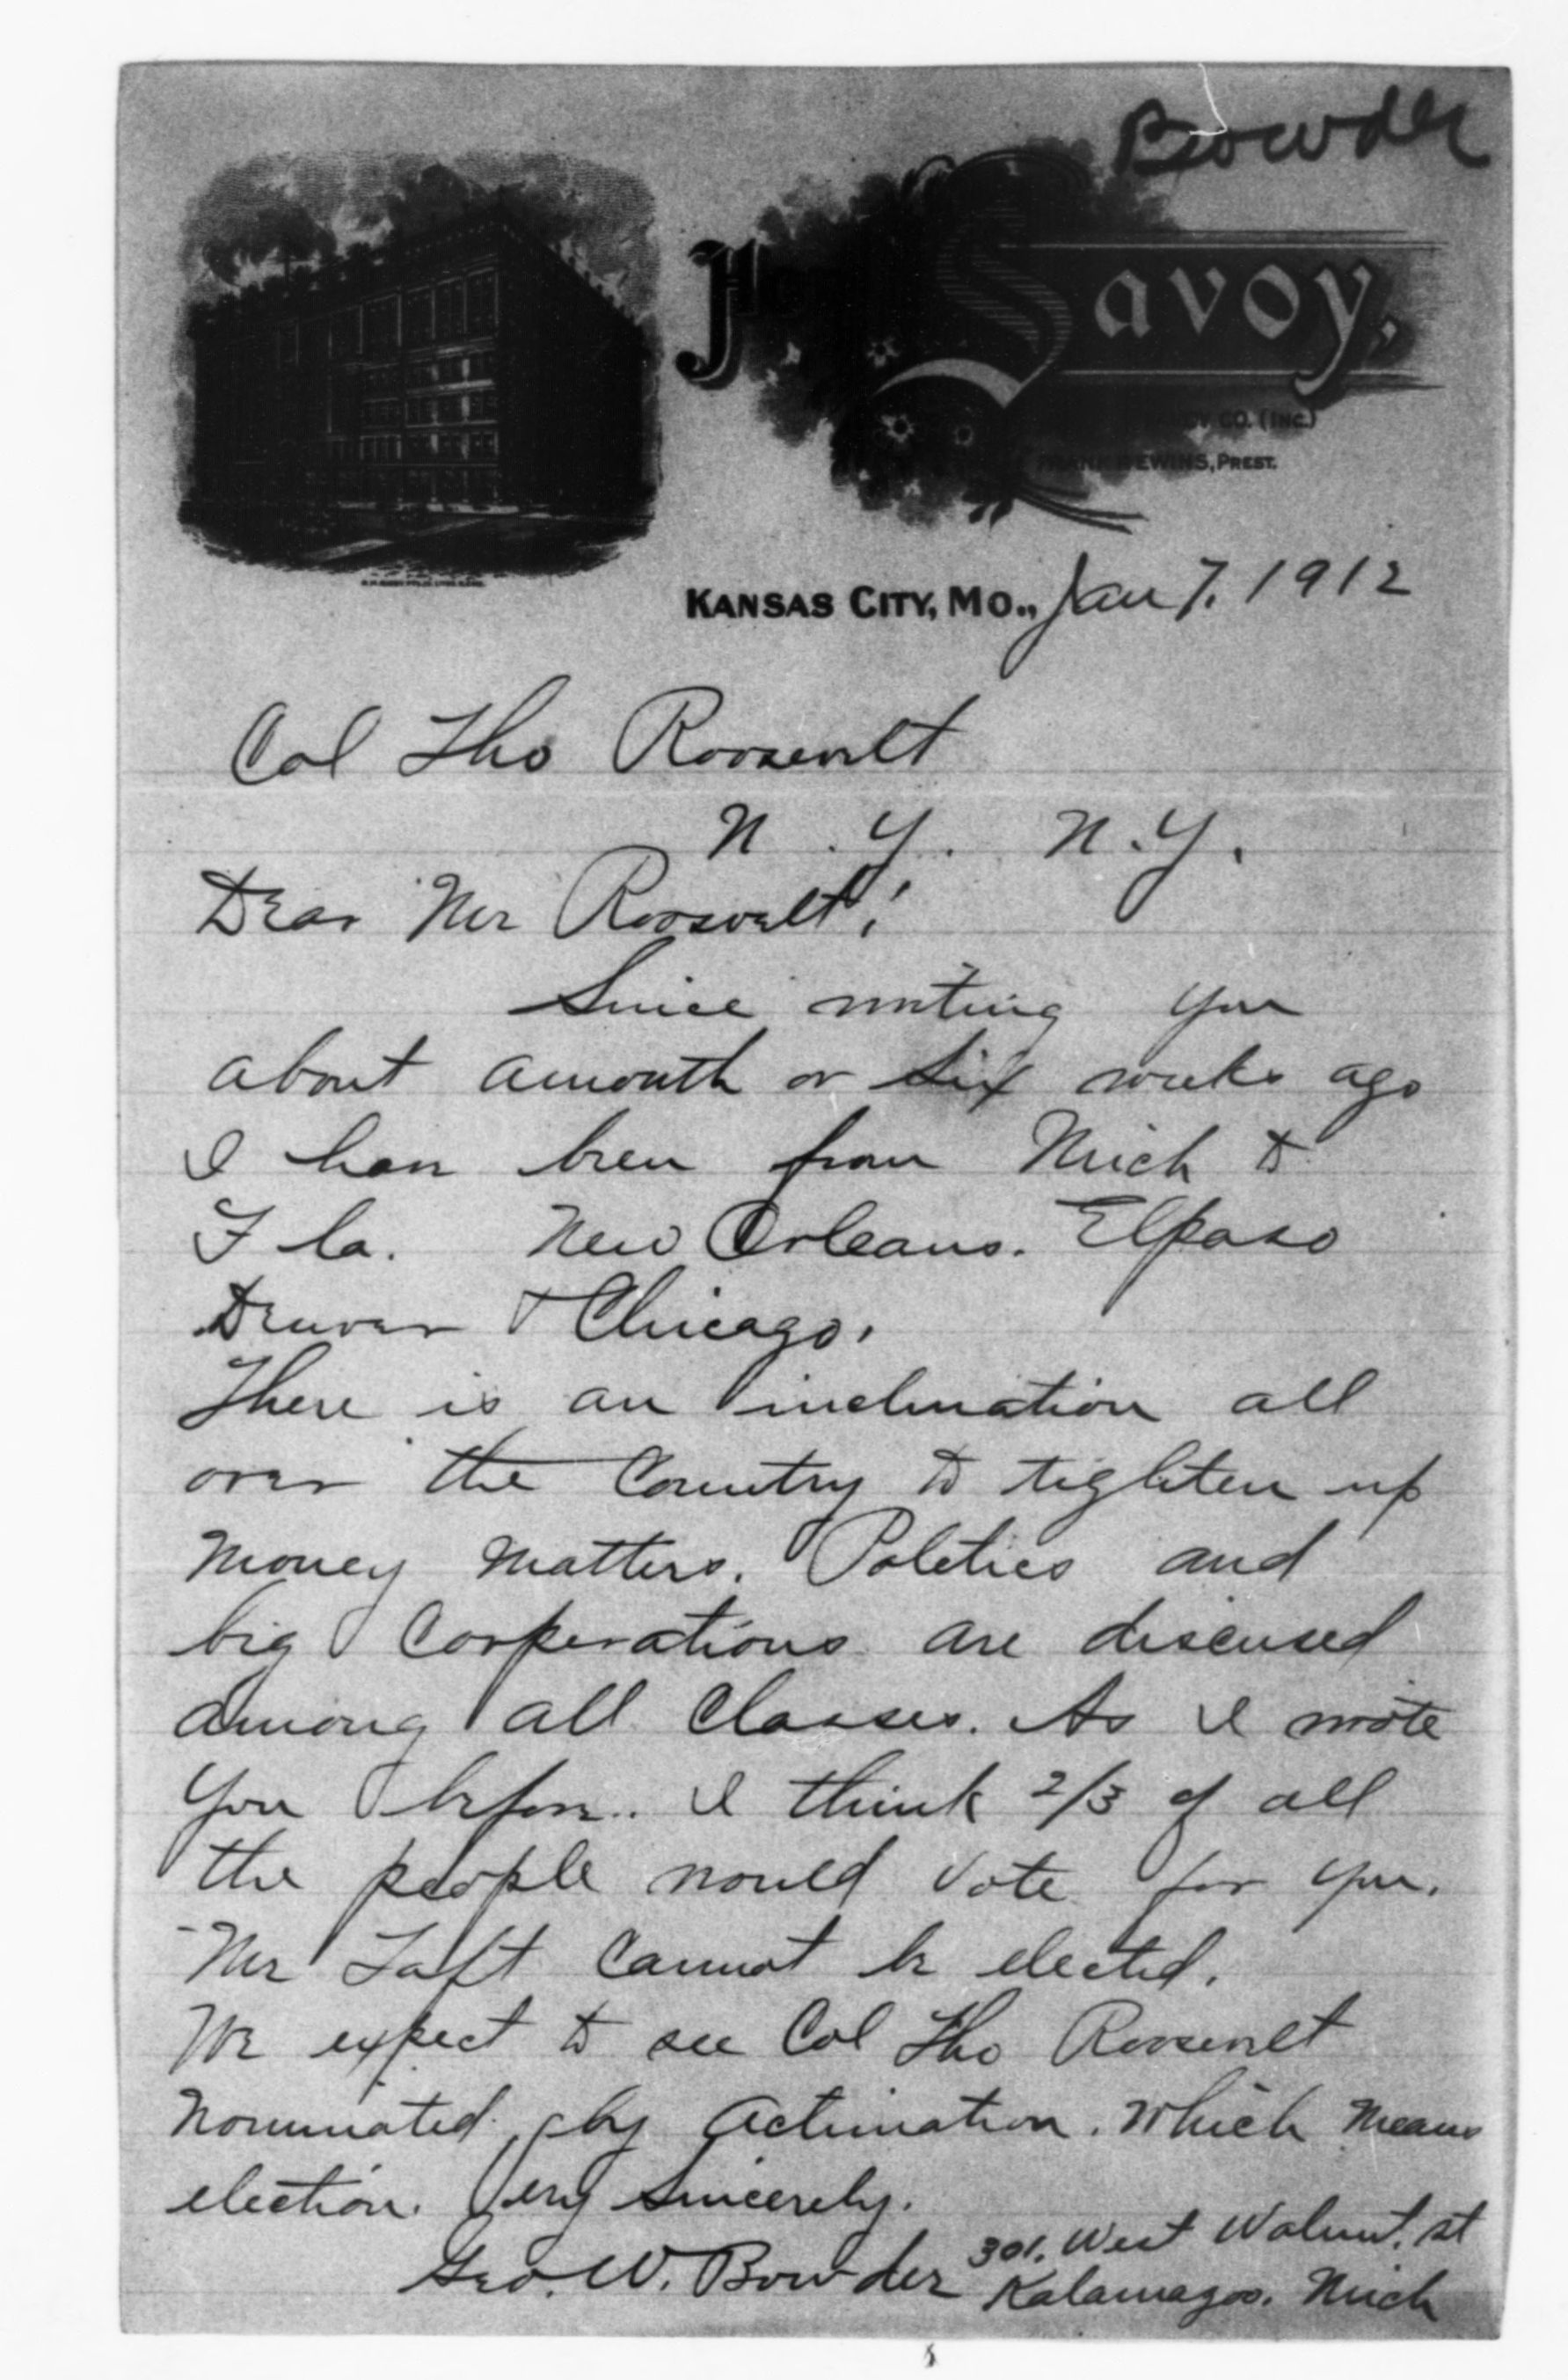 Bowder
Hotel Savoy,
CO. (INC.)
FRANK DEWINS, PREST.
KANSAS CITY, MO., Jan 7, 1912
Col Tho Roosevelt
N.Y. N.Y.
Dear Mr Roosvelt;
Since writing you
about amonth or six weeks ago
I have been from Mich to
Fla. New Orleans. Elpaso
Denver & Chicago.
There is an inclination all
over the Country to tighten up
Money Matters. Poletics and
big Corperations are discused
among all Classes. As I wrote
you before.. I think 2/3 of all
the people would vote for you.
Mr Taft Cannot be elected.
We expect to see Col Tho Roosevelt
Nominated by Aclimation. Which Means
election. Very Sincerely.
Geo. W. Bowder 301. West Walnut. st
Kalamazoo. Mich